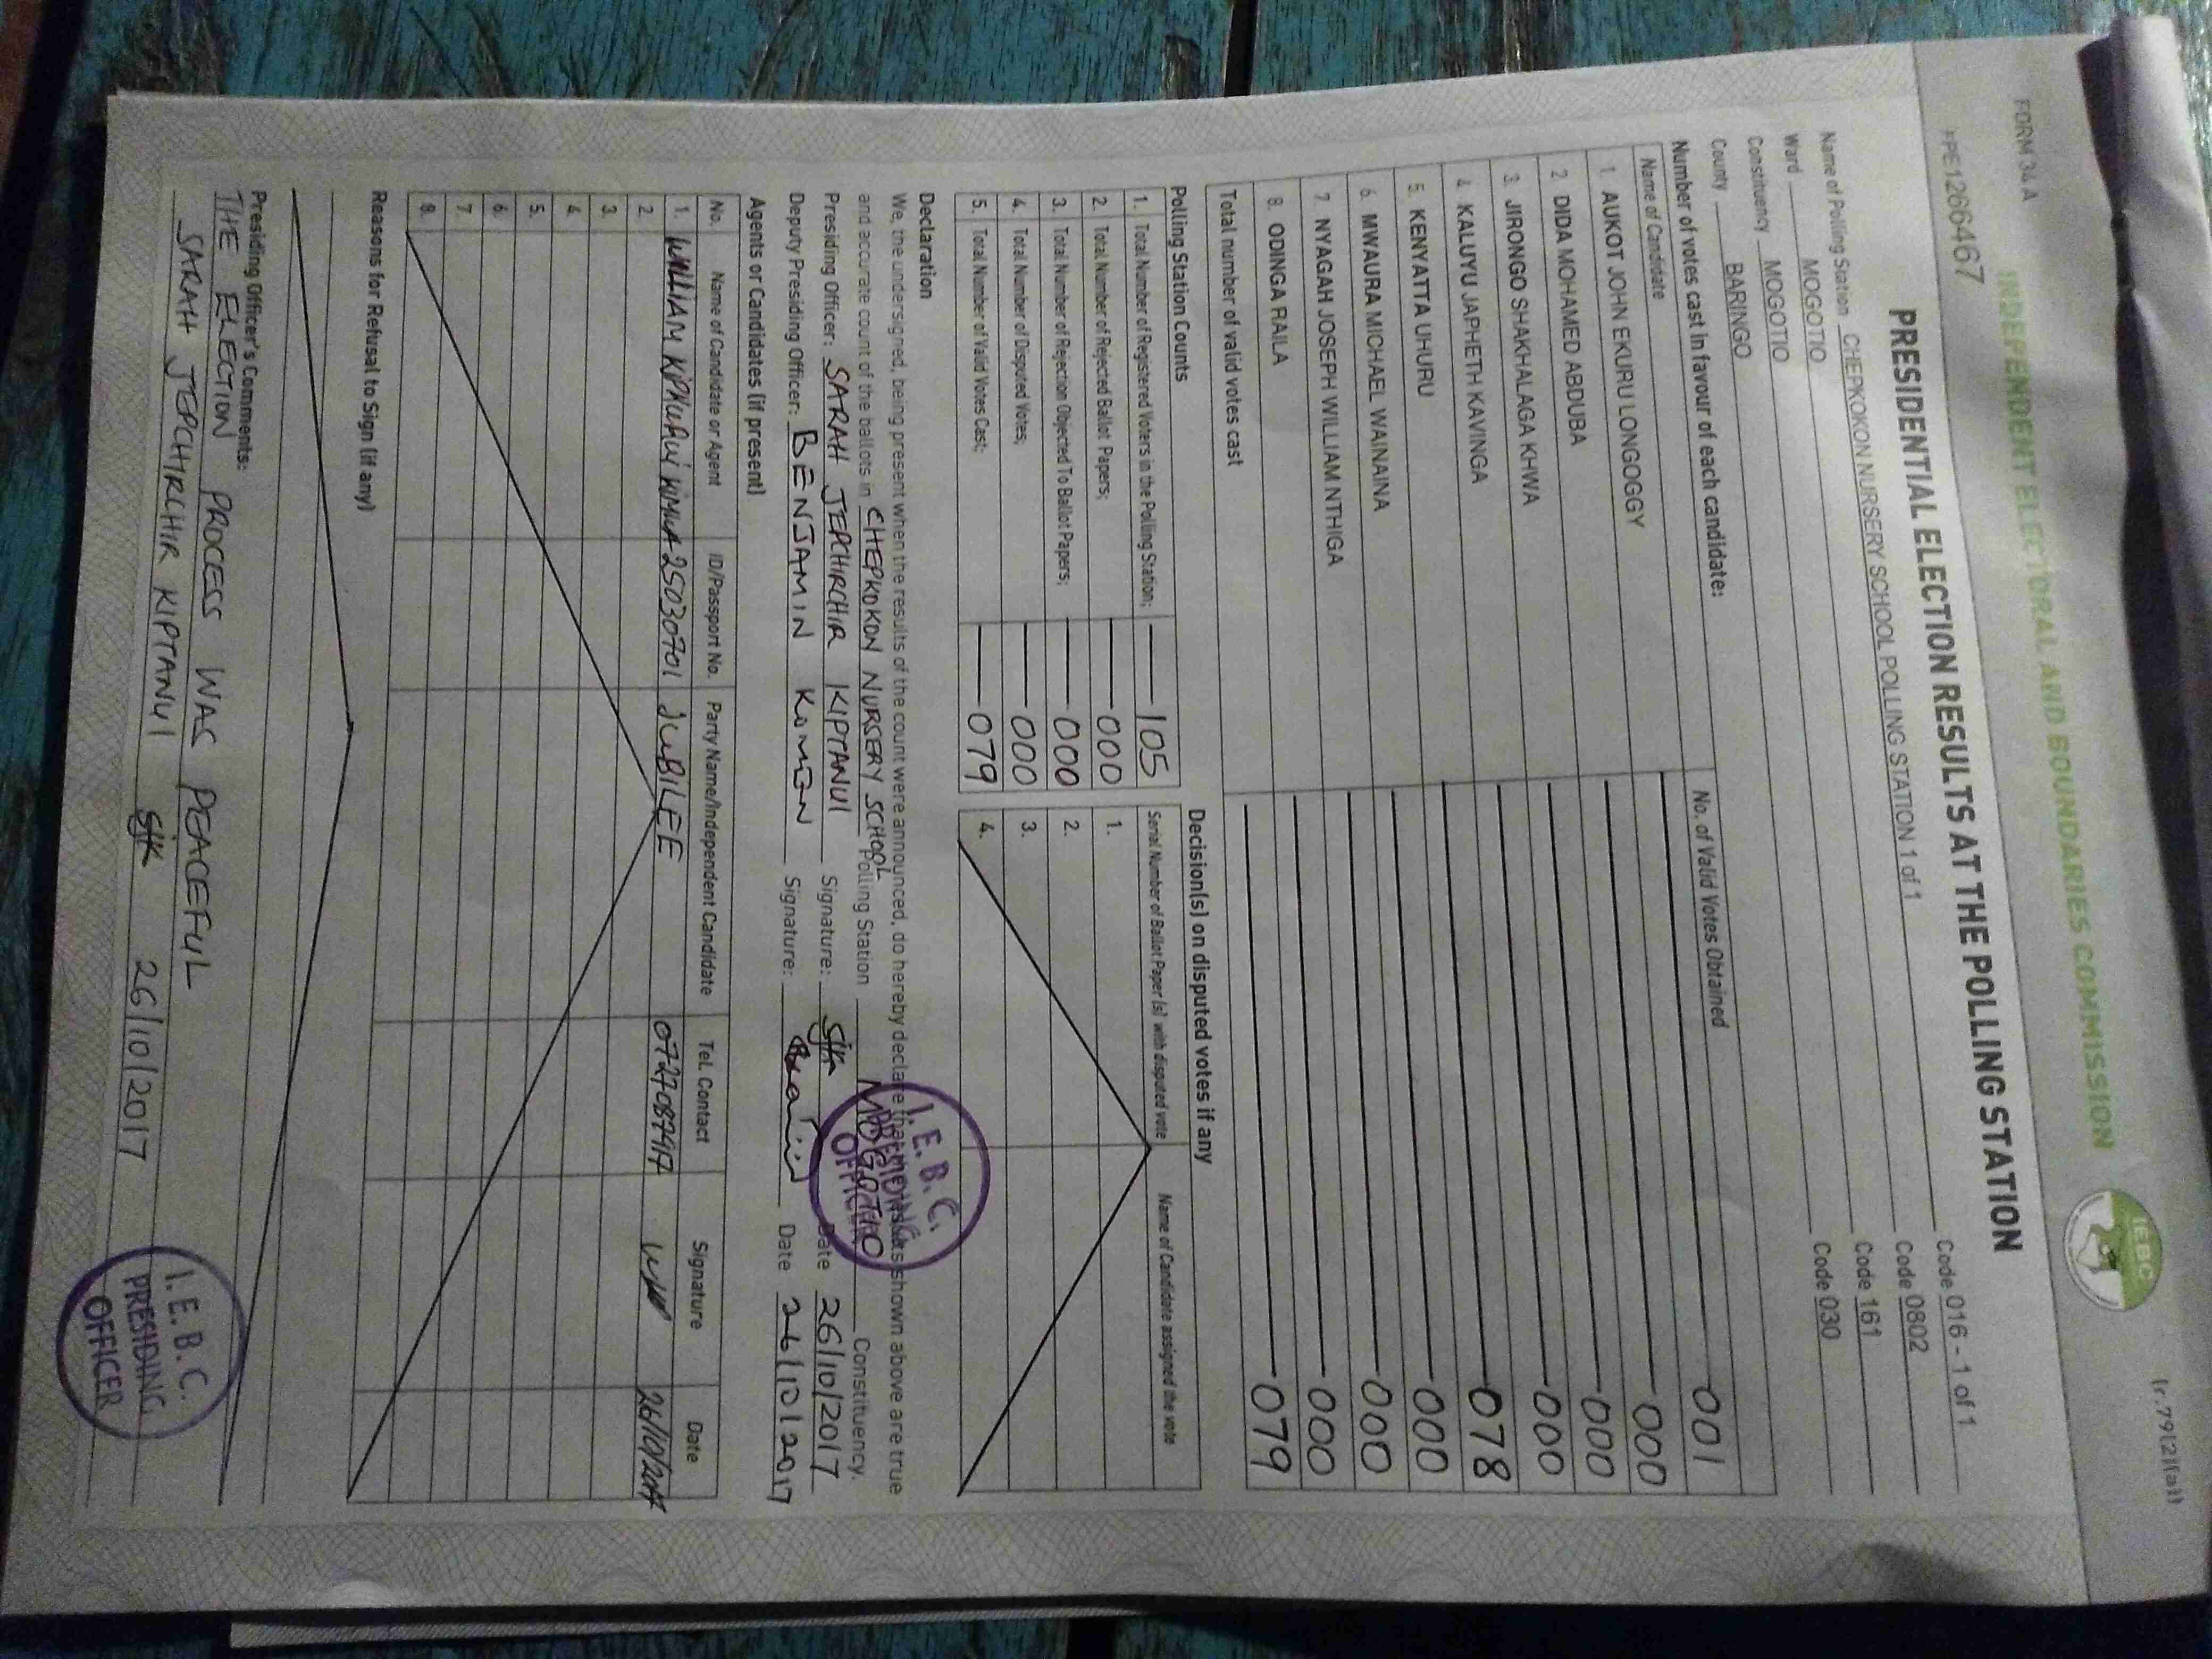 (r.79(2)(a))
INDEPENDENT ELECTORAL AND BOUNDARIES COMMISSION
IEBC
FORM 34A
PRESIDENTIAL ELECTION RESULTS AT THE POLLING STATION
Name of Polling Station CHEPKOKON NURSERY SCHOOL POLLING STATION 1 of 1 Code 016 - 1 of 1
Ward MOGOTIO Code 0802
Constituency MOGOTIO Code 161
County BARINGO Code 030
Number of votes cast in favour of each candidate:
Name of Candidate No. of Valid Votes Obtained
1. AUKOT JOHN EKURU LONGOGGY 001
2. DIDA MOHAMED ABDUBA 000
3. JIRONGO SHAKHALAGA KHWA 000
4. KALUYU JAPHETH KAVINGA 000
5. KENYATTA UHURU 078
6. MWAURA MICHAEL WAINAINA 000
7. NYAGAH JOSEPH WILLIAM NTHIGA 000
8. ODINGA RAILA 000
Total number of valid votes cast 079
Polling Station Counts
1. Total Number of Registered Voters in the Polling Station; 105
2. Total Number of Rejected Ballot Papers; 000
3. Total Number of Rejection Objected To Ballot Papers; 000
4. Total Number of Disputed Votes; 000
5. Total Number of Valid Votes Cast; 079
Decision(s) on disputed votes if any
Serial Number of Ballot Paper (s) with disputed vote Name of Candidate assigned the vote
1.
2.
3.
4.
Declaration
We, the undersigned, being present when the results of the count were announced, do hereby declare that the results shown above are true
and accurate count of the ballots in CHEPKOKON NURSERY SCHOOL Polling Station MOGOTIO Constituency.
Presiding Officer: SARAH JEPCHIRCHIR KIPTANUI Signature: SJK Date 26/10/2017
Deputy Presiding Officer: BENJAMIN KOMEN Signature: Date 26/10/2017
I.E.B.C.
PRESIDING
OFFICER
Agents or Candidates (if present)
No. Name of Candidate or Agent ID/Passport No. Party Name/Independent Candidate Tel. Contact Signature Date
1. WILLIAM 25030701 JUBILEE 26/10/2017
2.
3.
4.
5.
6.
7.
8.
Reasons for Refusal to Sign (if any)
Presiding Officer's Comments:
THE ELECTION PROCESS WAS PEACEFUL
SARAH JEPCHIRCHIR KIPTANUI SJK 26/10/2017
I.E.B.C.
PRESIDING
OFFICER